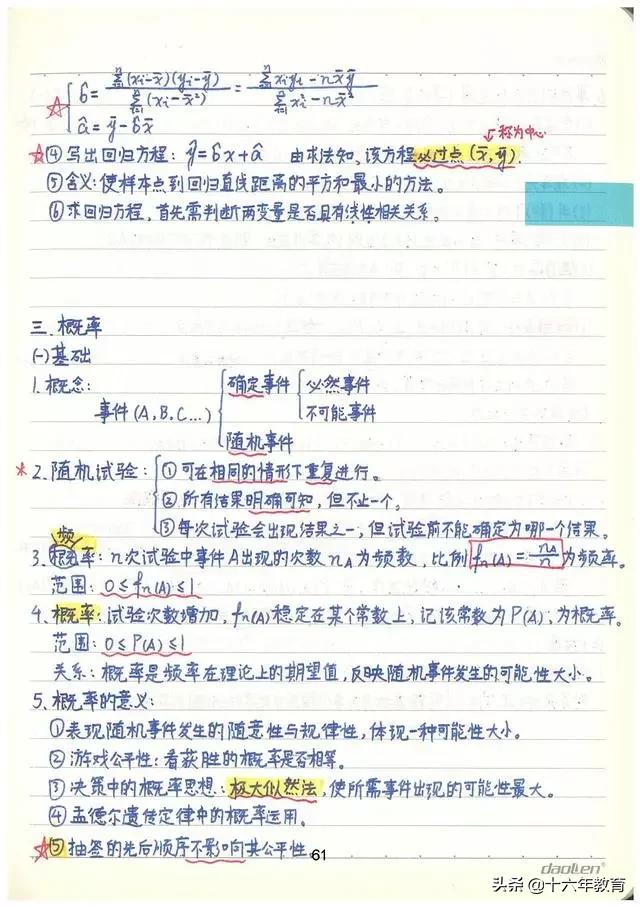 b̂ = Σ(i=1→n)(xi-x̄)(yi-ȳ) / Σ(i=1→n)(xi-x̄²) = Σ(i=1→n)xiyi-nx̄ȳ / Σ(i=1→n)xi²-nx̄²
â = ȳ-b̂x̄
称为中心
④写出回归方程: ŷ=b̂x+â 由求法知,该方程必过点(x̄,ȳ).
⑤含义:使样本点到回归直线距离的平方和最小的方法。
⑥求回归方程,首先需判断两变量是否具有线性相关关系。
三.概率
(一)基础
1.概念:
事件(A,B,C...)
确定事件
必然事件
不可能事件
随机事件
2.随机试验:
①可在相同的情形下重复进行。
②所有结果明确可知,但不止一个。
③每次试验会出现结果之一,但试验前不能确定为哪一个结果。
频
3.概率:n次试验中事件A出现的次数nA为频数,比例fn(A)=nA/n为频率。
范围:0≤fn(A)≤1
4.概率:试验次数增加,fn(A)稳定在某个常数上,记该常数为P(A),为概率。
范围:0≤P(A)≤1
关系:概率是频率在理论上的期望值,反映随机事件发生的可能性大小。
5.概率的意义:
①表现随机事件发生的随意性与规律性,体现一种可能性大小。
②游戏公平性:看获胜的概率是否相等。
③决策中的概率思想:极大似然法,使所需事件出现的可能性最大。
④孟德尔遗传定律中的概率运用。
⑤抽签的先后顺序不影响其公平性。
61
daolien
头条@十六年教育